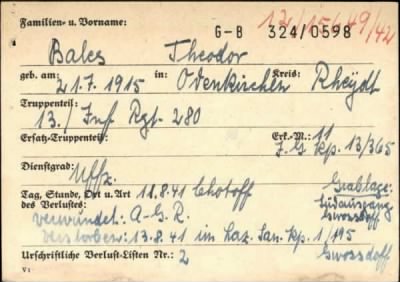 Familien- u. Vorname: G-B 324/0598 12/15/49/42
Bales Theodor
geb. am: 21.7.1915 in: Odenkirchen Kreis: Rheydt
Truppenteil:
13./Inf. Rgt. 280
Ersatz-Truppenteil: Erk.-M.: 11
J.G. Kp. 13/365
Dienstgrad:
Uffz.
Tag, Stunde, Ort u. Art 11.8.41 Chotoff Grablage:
des Verlustes: Südausgang
verwundet: A-G.R. Gwosdoff
verstorben: 13.8.41 im Laz. San. Kp. 1/195
Urschriftliche Verlust-Listen Nr.: 2 Gwosdoff
V 1